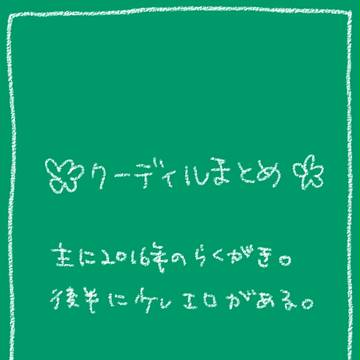 クーディルまとめ
主に2016年のらくがき。
後半にケレエロがある。